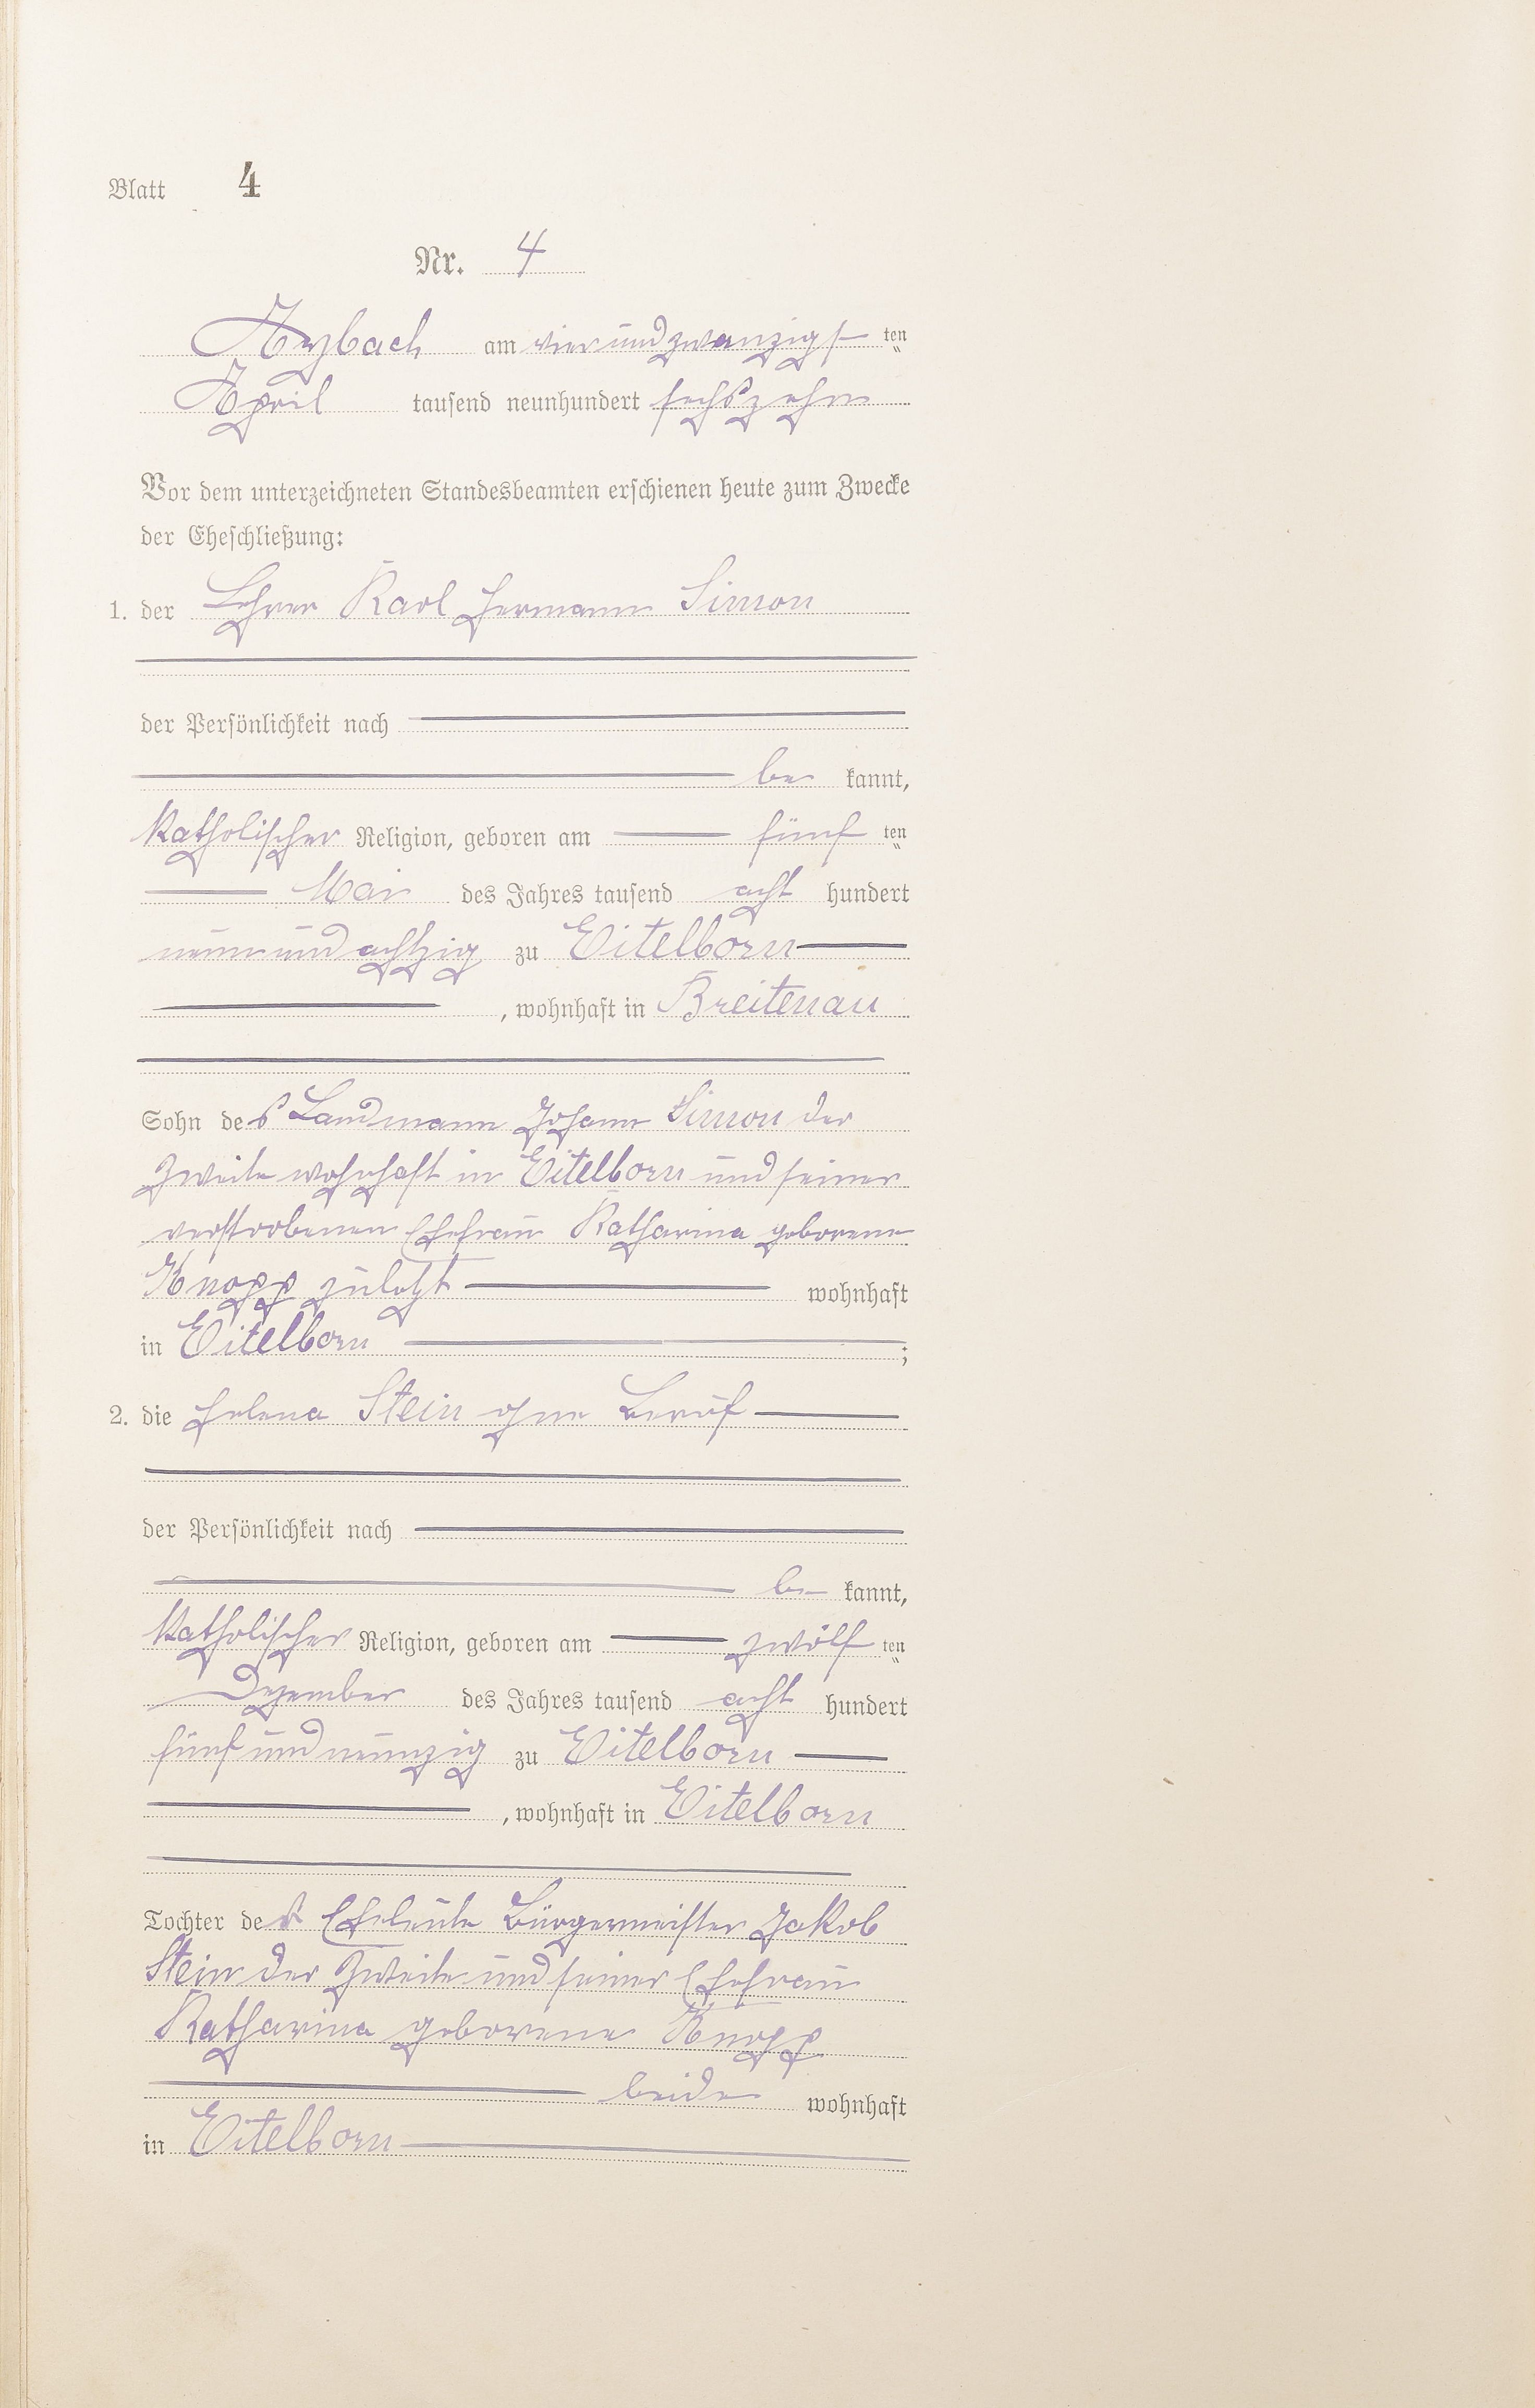 Blatt 4
Nr. 4
Arzbach am vierundzwanzigsten
April tausend neunhundert sechszehn
Vor dem unterzeichneten Standesbeamten erschienen heute zum Zwecke
der Eheschließung:
1. der Lehrer Karl Hermann Simon
der Persönlichkeit nach
be kannt,
katholischer Religion, geboren am fünften
Mai des Jahres tausend acht hundert
neunundachtzig zu Eitelborn
, wohnhaft in Breitenau
Sohn des Landmann Johann Simon der
Zweite wohnhaft in Eitelborn und seiner
verstorbenen Ehefrau Katharina geborene
Knopp zuletzt wohnhaft
in Eitelborn ;
2. die Helena Stein ohne Beruf
der Persönlichkeit nach
be kannt,
katholischer Religion, geboren am zwölften
Dezember des Jahres tausend acht hundert
fünfundneunzig zu Eitelborn
, wohnhaft in Eitelborn
Tochter der Eheleute Bürgermeister Jakob
Stein der Zweite und seiner Ehefrau
Katharina geborene Knopp
beide wohnhaft
in Eitelborn